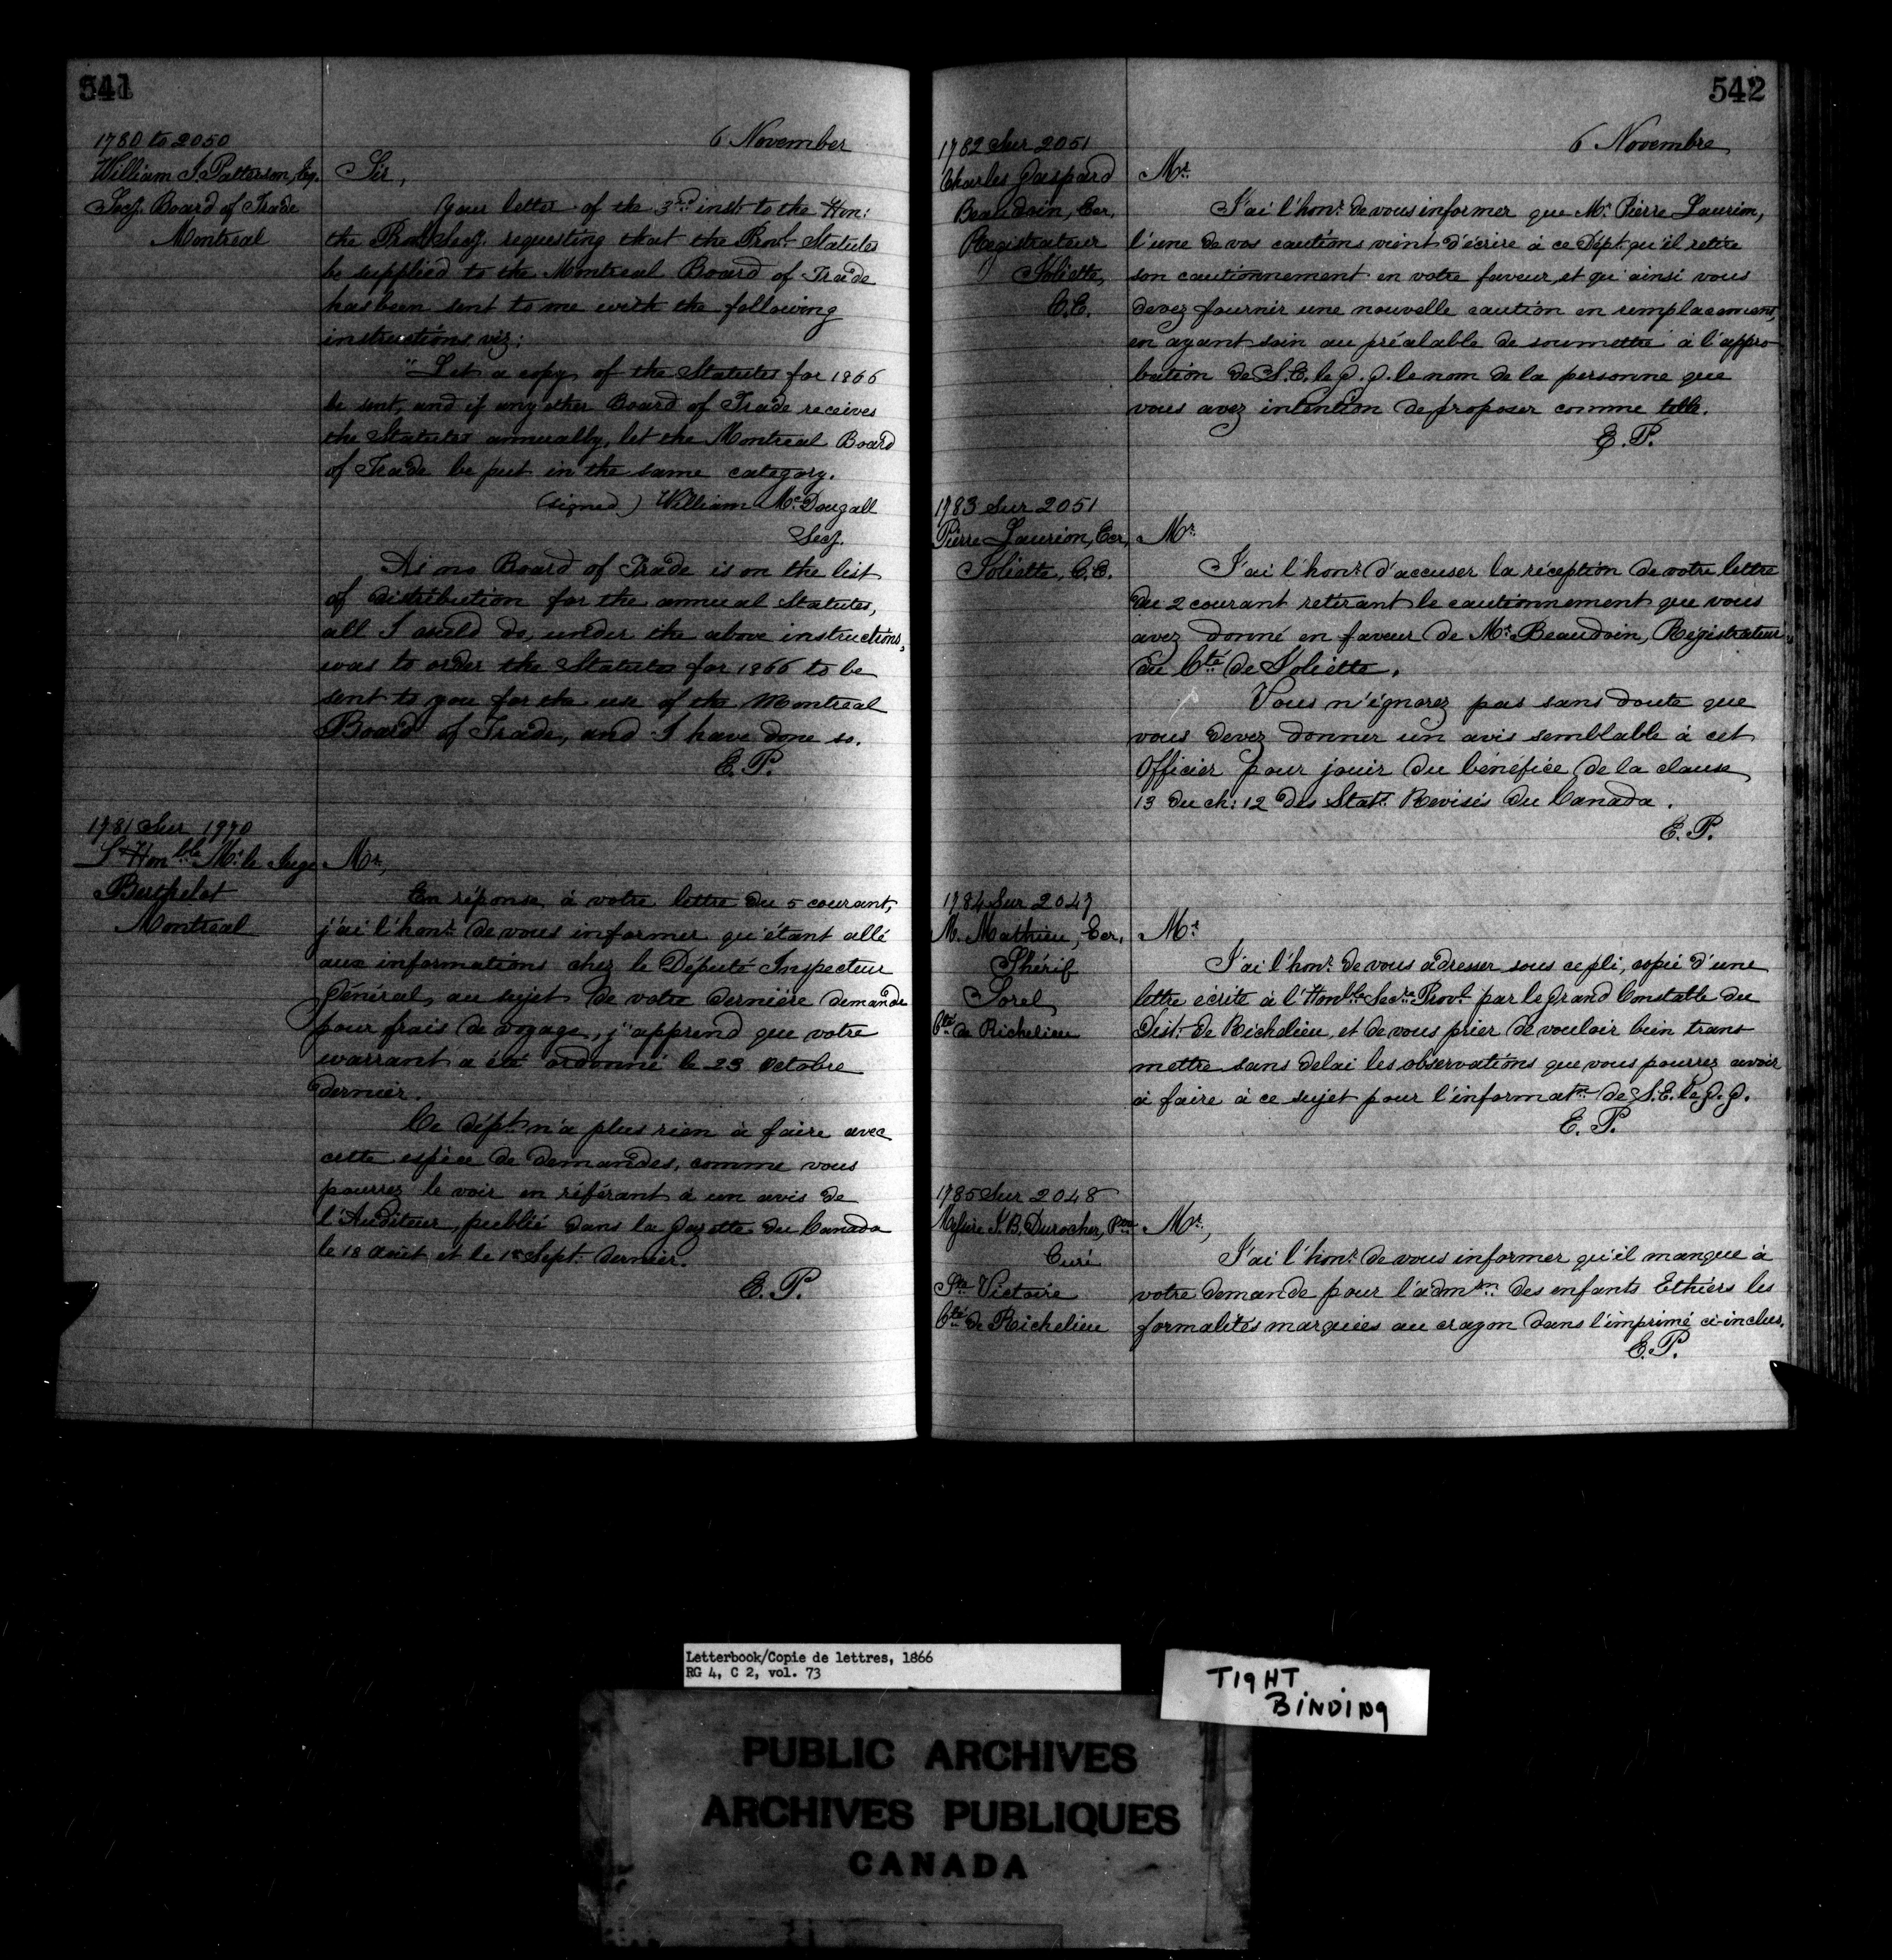 541
1780 to 2050
William J. Patterson, Esq.
Secy. Board of Trade
Montreal
6 November
Sir,
Your letter of the 3rd inst. to the Hon:
the Provl. Secy. requesting that the Provl. Statutes
be supplied to the Montreal Board of Trade
has been sent to me with the following
instructions viz:
"Let a copy of the Statutes for 1866
be sent, and if any other Board of Trade receives
the Statutes annually, let the Montreal Board
of Trade be put in the same category.
(signed) William McDougall
Secy.
As no Board of Trade is on the list
of distribution for the annual Statutes,
all I could do, under the above instructions,
was to order the Statutes for 1866 to be
sent to you for the use of the Montreal
Board of Trade, and I have done so.
E. P.
1781 Sur 1970
L'Honble. Mr. le Juge
Berthelot
Montreal
Mr.,
En réponse à votre lettre du 5 courant,
j'ai l'honr. de vous informer qu'étant allé
aux informations chez le Député Inspecteur
Général, au sujet de votre dernière demande
pour frais de voyage, j'apprend que votre
warrant a été ordonné le 23 Octobre
dernier.
Ce dépt. n'a plus rien à faire avec
cette espèce de demandes, comme vous
pourrez le voir en référant à un avis de
l'Auditeur, publié dans la Gazette du Canada
le 18 Août et le 1er Sept. dernier.
E. P.
542
1782 Sur 2051
Charles Gaspard
Beaudoin, Ecr,
Registrateur
Joliette,
C.E.
6 Novembre
Mr.
J'ai l'honr. de vous informer que Mr. Pierre Laurion,
l'une de vos cautions vient d'écrire à ce Dépt. qu'il retire
son cautionnement en votre faveur, et qu'ainsi vous
devez fournir une nouvelle caution en remplacement,
en ayant soin au préalable de soumettre à l'appro-
bation de S. E. le G. G. le nom de la personne que
vous avez intention de proposer comme telle.
E. P.
1783 Sur 2051
Pierre Laurion, Ecr,
Joliette, C.E.
Mr.
J'ai l'honr. d'accuser la réception de votre lettre
du 2 courant retirant le cautionnement que vous
avez donné en faveur de Mr. Beaudoin, Régistrateur
du Cté de Joliette.
Vous n'ignorez pas sans doute que
vous devez donner un avis semblable à cet
Officier pour jouir du bénéfice de la clause
13 du ch: 12 des Stats. Revisés du Canada.
E. P.
1784 Sur 2047
M. Mathieu, Ecr,
Shérif
Sorel
Cté de Richelieu
Mr.
J'ai l'honr. de vous adresser sous ce pli, copie d'une
lettre écrite à l'Honble. Secre. Provl. par le Grand Constable du
Dist. de Richelieu, et de vous prier de vouloir bien trans
mettre sans delai les observations que vous pourrez avoir
à faire à ce sujet pour l'informatn. de S. E. le G. G.
E. P.
1785 Sur 2048
Messire J. B. Durocher, Ptre
Curé
Ste Victoire
Cté de Richelieu
Mr.,
J'ai l'honr. de vous informer qu'il manque à
votre demande pour l'admon. des enfants Ethiers les
formalités marquées au crayon dans l'imprimé ci-inclus.
E. P.
Letterbook/Copie de lettres, 1866
RG 4, C 2, vol. 73
TIGHT
BINDING
PUBLIC ARCHIVES
ARCHIVES PUBLIQUES
CANADA